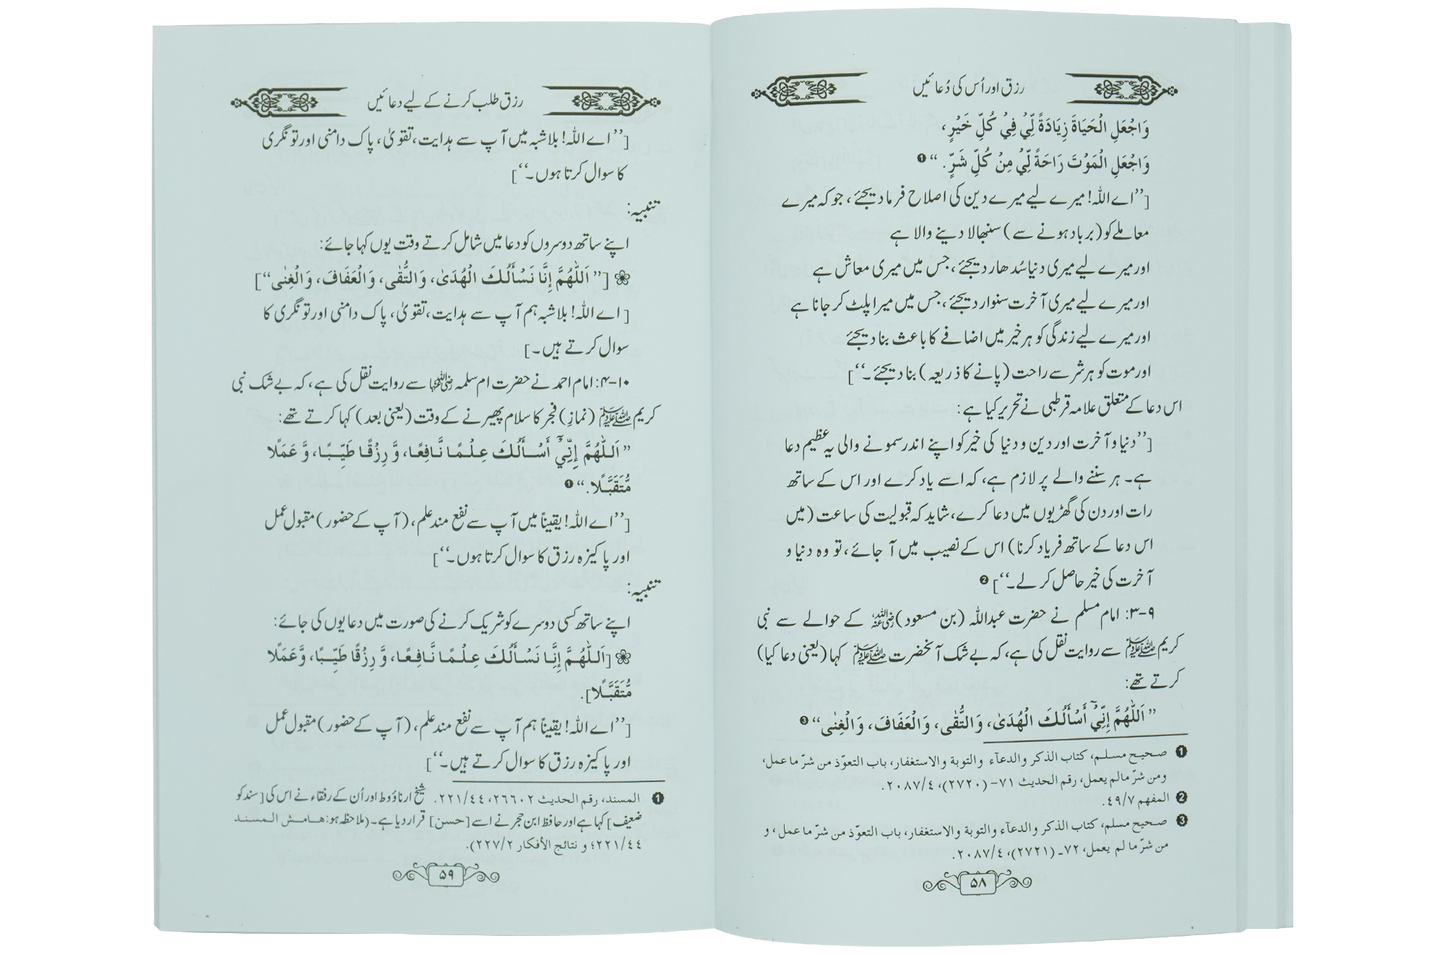 رزق اور اُس کی دُعائیں
وَاجْعَلِ الْحَيَاةَ زِيَادَةً لِّيْ فِيْ كُلِّ خَيْرٍ،
وَاجْعَلِ الْمَوْتَ رَاحَةً لِّيْ مِنْ كُلِّ شَرٍّ.“ ❶
[’’اے اللہ! میرے لیے میرے دین کی اصلاح فرما دیجئے، جو کہ میرے
معاملے کو (برباد ہونے سے) سنبھالا دینے والا ہے
اور میرے لیے میری دنیا سُدھار دیجئے، جس میں میری معاش ہے
اور میرے لیے میری آخرت سنوار دیجئے، جس میں میرا پلٹ کر جانا ہے
اور میرے لیے زندگی کو ہر خیر میں اضافے کا باعث بنا دیجئے
اور موت کو ہر شر سے راحت (پانے کا ذریعہ) بنا دیجئے۔‘‘]
اس دعا کے متعلق علامہ قرطبی نے تحریر کیا ہے:
[’’دنیا و آخرت اور دین و دنیا کی خیر کو اپنے اندر سمونے والی یہ عظیم دعا
ہے۔ ہر سننے والے پر لازم ہے، کہ اسے یاد کرے اور اس کے ساتھ
رات اور دن کی گھڑیوں میں دعا کرے، شاید کہ قبولیت کی ساعت (میں
اس دعا کے ساتھ فریاد کرنا) اس کے نصیب میں آ جائے، تو وہ دنیا و
آخرت کی خیر حاصل کر لے۔‘‘] ❷
۹-۳: امام مسلم نے حضرت عبداللہ (بن مسعود) رضی اللہ عنہ کے حوالے سے نبی
کریم ﷺ سے روایت نقل کی ہے، کہ بے شک آنحضرت ﷺ کہا (یعنی دعا کیا)
کرتے تھے:
”اَللّٰهُمَّ إِنِّيْٓ أَسْأَلُكَ الْهُدَىٰ، وَالتُّقٰى، وَالْعَفَافَ، وَالْغِنٰى“ ❸
❶ صحيح مسلم، كتاب الذكر والدعآء والتوبة والاستغفار، باب التعوّذ من شرّ ما عمل،
ومن شرّ مالم يعمل، رقم الحديث ٧١- (٢٧٢٠)، ٢٠٨٧/٤.
❷ المفهم ٤٩/٧.
❸ صحيح مسلم، كتاب الذكر والدعآء والتوبة والاستغفار، باب التعوّذ من شرّ ما عمل، و
من شرّ ما لم يعمل، ٧٢- (٢٧٢١)، ٢٠٨٧/٤.
۵۸
رزق طلب کرنے کے لیے دعائیں
[’’اے اللہ! بلاشبہ میں آپ سے ہدایت، تقویٰ، پاک دامنی اور تونگری
کا سوال کرتا ہوں۔‘‘]
تنبیہ:
اپنے ساتھ دوسروں کو دعا میں شامل کرتے وقت یوں کہا جائے:
❀ [”اَللّٰهُمَّ إِنَّا نَسْأَلُكَ الْهُدَىٰ، وَالتُّقٰى، وَالْعَفَافَ، وَالْغِنٰى“]
[اے اللہ! بلاشبہ ہم آپ سے ہدایت، تقویٰ، پاک دامنی اور تونگری کا
سوال کرتے ہیں۔]
۱۰-۴: امام احمد نے حضرت ام سلمہ رضی اللہ عنہا سے روایت نقل کی ہے، کہ بے شک نبی
کریم ﷺ (نمازِ) فجر کا سلام پھیرنے کے وقت (یعنی بعد) کہا کرتے تھے:
”اَللّٰهُمَّ إِنِّيْٓ أَسْأَلُكَ عِلْمًا نَّافِعًا، وَّ رِزْقًا طَيِّبًا، وَّ عَمَلًا
مُّتَقَبَّلًا.“ ❶
[’’اے اللہ! یقیناً میں آپ سے نفع مند علم، (آپ کے حضور) مقبول عمل
اور پاکیزہ رزق کا سوال کرتا ہوں۔‘‘]
تنبیہ:
اپنے ساتھ کسی دوسرے کو شریک کرنے کی صورت میں دعا یوں کی جائے:
❀ [اَللّٰهُمَّ إِنَّا نَسْأَلُكَ عِلْمًا نَّافِعًا، وَّ رِزْقًا طَيِّبًا، وَّعَمَلًا
مُّتَقَبَّلًا].
[’’اے اللہ! یقیناً ہم آپ سے نفع مند علم، (آپ کے حضور) مقبول عمل
اور پاکیزہ رزق کا سوال کرتے ہیں۔‘‘]
❶ المسند، رقم الحديث ٢٦٦٠٢، ٢٢١/٤٤. شیخ ارناؤوط اور اُن کے رفقاء نے اس کی [سند کو
ضعیف] کہا ہے اور حافظ ابن حجر نے اسے [حسن] قرار دیا ہے۔ (ملاحظہ ہو: هامش المسند
٢٢١/٤٤؛ و نتائج الأفكار ٢٢٧/٢).
۵۹